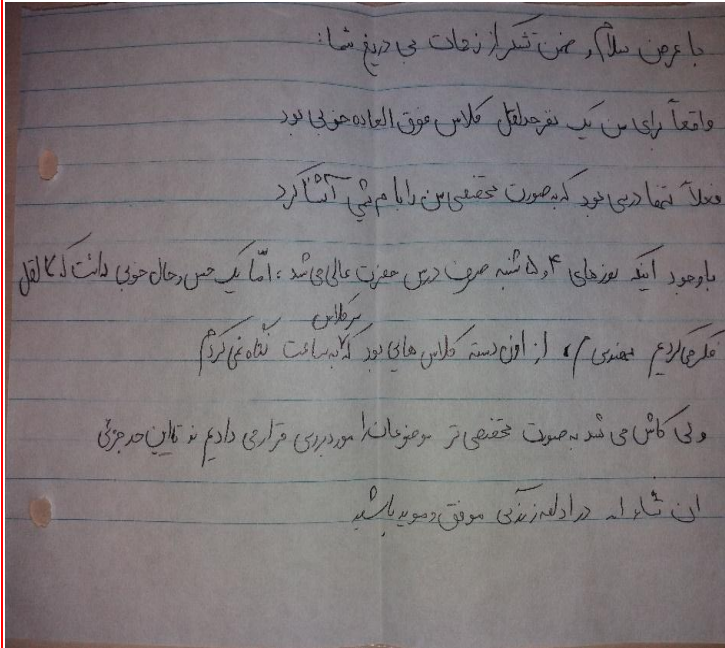 با عرض سلام و ضمن تشکر از زحمات بی دریغ شما:
واقعاً برای من یک نفر حداقل کلاس فوق العاده خوبی بود
فعلاً تنها درسی بود که به صورت تخصصی من را با آشنا کرد
با وجود اینکه روزهای ۴ و ۵ شنبه صرف درس حضرت عالی می شد، امّا یک حس و حال خوبی داشت که لااقل
سر کلاس
فکر می کردیم مهندسیم، از اون دسته کلاس هایی بود که به ساعت نگاه نمی کردم
ولی کاش می شد به صورت تخصصی تر موضوعات را مورد بررسی قرار می دادیم نه تا این حد جزئی
ان شاء اله در ادامه زندگی موفق و موید باشید